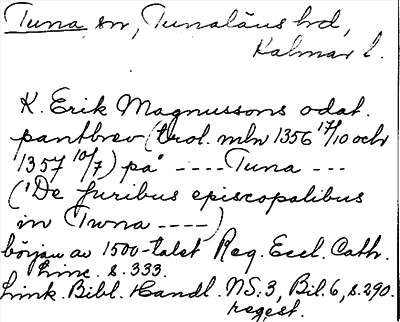 Tuna, sn, Tunaläns hrd,
Kalmar l.
K. Erik Magnussons odat.
pantbrev (trol. mln 1356 17/10 och
1357 10/7) på ---- Tuna ---
('De juribus episcopalibus
in Twna ----)
början av 1500-talet Reg. Eccl. Cath.
Linc. s. 333.
Link. Bibl. Handl. NS: 3, Bil. 6, s. 290.
regest.